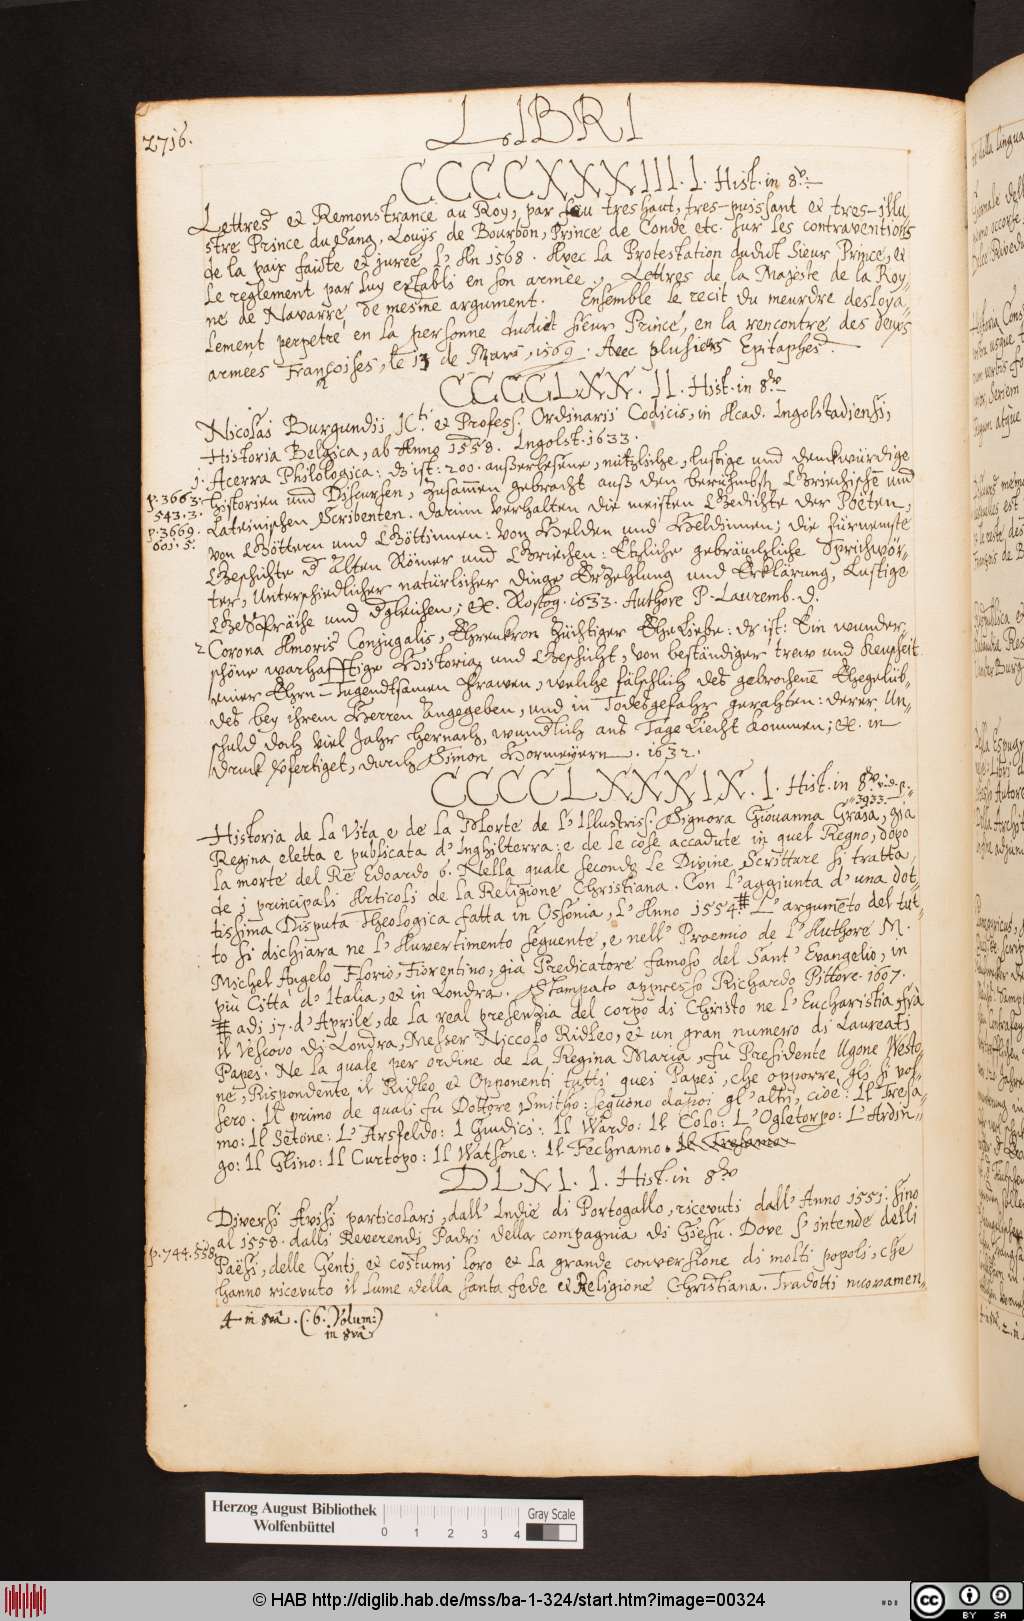 2716.
LIBRI
CCCCXXXIIII. I. Hist. in 8vo.
Lettres et Remonstrance au Roy, par feu treshaut, tres-puissant et tres-illu=
stre Prince du Sang, Louÿs de Bourbon, Prince de Condé etc. sur les contraventions
de la paix faicte et jurée l'An 1568. Avec la Protestation dudict Sieur Prince, et
le reglement par luy establi en son armée. Lettres de la Majesté de la Roy=
ne de Navarre, de mesme argument. Ensemble le recit du meurdre desloya=
lement perpetré en la personne dudict sieur Prince, en la rencontre des deux
armees Françoises, le 13 de Mars, 1569. Avec plusieurs Epitaphes.
CCCCLXX. II. Hist. in 8vo
Nicolai Burgundii JCti et Profess. Ordinarii Codicis, in Acad. Ingolstadiensi,
Historia Belgica, ab Anno 1558. Ingolst. 1633.
1. Acerra Philologica: ds ist: 200. außerlesene, nützliche, lustige und denckwürdige
p. 3663.
543. 3.
p. 3669.
601. 5.
Historien und Discursen, zusamen gebracht auß den berühmbstē Griechischē und
Lateinischen Scribenten. darum verhalten die meisten Gedichte der Poëten,
von Göttern und Göttinnen: von Helden und Heldinnen; die fürnemste
Geschichte d Alten Römer und Griechen: Etzliche gebräuchliche Sprichwör=
ter, Unterschiedlicher natürlicher dinge Erzehlung und Erklärung, Lustige
GeSPräche und dgleichen; &c. Rostog. 1633. Authore P. Lauremb. D.
2 Corona Amoris Conjugalis, Ehrenkron züchtiger EheLiebe: ds ist: Ein wunder=
schöne warhafftige Historia und Geschicht, von beständiger trew und Keuscheit
einer Ehrn- Tugendtsamen Frawen, welche fälschlich des gebrochenē Ehegelüb=
des bey ihrem Herren Angegeben, und in Todesgefahr gerahten: derer Un=
schuld doch viel Jahr hernach, wundlich ans Tage Liecht kommen; &c. in
druck vfertiget, durch Simon Hormeyern. 1632.
CCCCLXXXIX. I. Hist. in 8vo vid. p.
3933.
Historia de la Vita e de la Morte de l'Illustriss. Signora Giovanna Graia, gia
Regina eletta e publicata d'Inghilterra: e de le cose accadute in quel Regno, dopo
la morte del Re Edoardo 6. Nella quale secondo le Divine Scritture si tratta
de i principali Articoli de la Religione Christiana. Con l'aggiunta d'una dot=
tissima Disputa Theologica fatta in Ossonia, l'Anno 1554.# L'argumēto del tut=
to si dichiara ne l'Auvertimento seguente, e nell' Proemio de l'Authore M.
Michel Angelo Florio, Fiorentino, già Predicatore famoso del Sant' Evangelio, in
più Città d'Italia, et in Londra. Stampato appresso Richardo Pittore. 1607.
# adi 17. d'Aprile, de la real presenzia del corpo di Christo ne l'Eucharistia, frà
il Vescovo di Londra, Messer Niccolo Ridleo, et un gran numero di Laureati
Papei. Ne la quale per ordine de la Regina Maria, fù Presidente Ugone Westo=
ne, Rispondente il Ridleo, et Opponenti tutti quei Papei, che opporre gli si vol=
sero: Il primo de quali fu Dottore Smitho: seguono dapoi gl'altri, cioè: Il Tresa=
mo: Il Setone: L'Arsfeldo: I Giudici: Il Wardo: Il Colo: L'Ogletorpo: L'Ardin=
go: Il Glino: Il Curtopo: Il Watsone: Il Fechnamo. Il Tresamo.
DLXI. I. Hist. in 8vo
Diversi Avisi particolari, dall' Indie di Portogallo, ricevuti dall' Anno 1551. sino
al 1558. dalli Reverendi Padri della compagnia di Giesu. Dove s'intende delli
p. 744. 558.
Paësi, delle Genti, et costumi loro et la grande conversione di molti popoli, che
hanno ricevuto il lume della santa fede et Religione Christiana. Tradotti nuovamen=
4 in 8vâ. (: 6. Volum:)
in 8vâ
Herzog August Bibliothek
Wolfenbüttel
0 1 2 3 4
Gray Scale
© HAB http://diglib.hab.de/mss/ba-1-324/start.htm?image=00324
cc BY SA